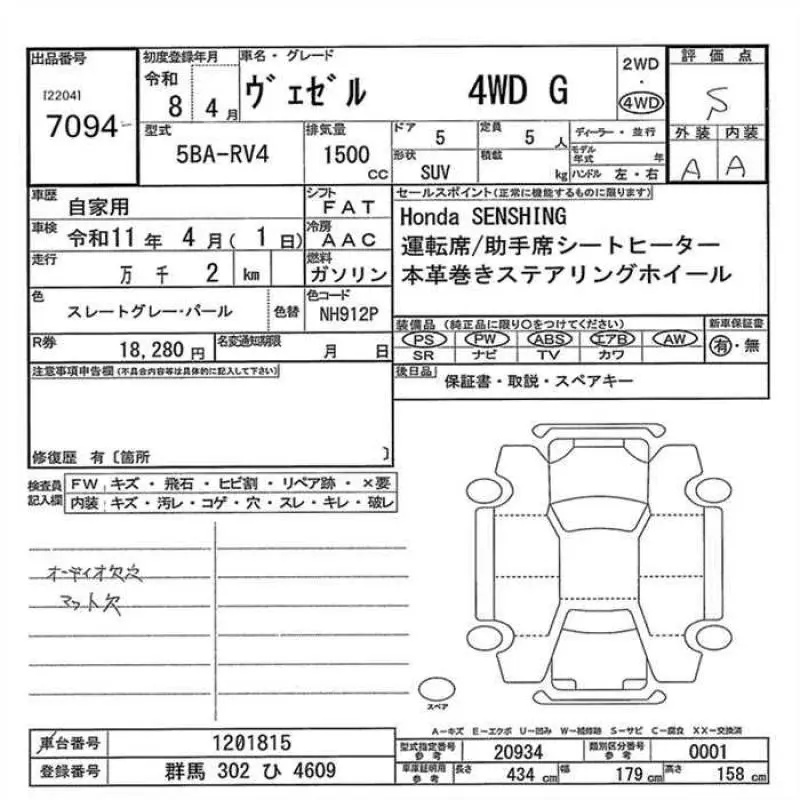 出品番号
[2204]
7094
初度登録年月
令和
8 4月
車名・グレード
ヴェゼル 4WD G
2WD
・
4WD
評価点
S
外装 内装
A A
型式
5BA-RV4
排気量
1500
CC
ドア 5
定員 5 人
ディーラー・並行
形状 SUV
積載 kg
モデル年式 年
ハンドル 左・右
車歴 自家用
シフト FAT
車検 令和11年 4月( 1日)
冷房 AAC
走行 万 千 2 km
燃料 ガソリン
色 スレートグレー・パール 色替
色コード NH912P
R券 18,280 円
名変通知期限 月 日
セールスポイント(正常に機能するものに限ります)
Honda SENSHING
運転席/助手席シートヒーター
本革巻きステアリングホイール
装備品 (純正品に限り○をつけてください)
PS PW ABS エアB AW
SR ナビ TV カワ
新車保証書
有・無
後日品 保証書・取説・スペアキー
注意事項申告欄 (不具合内容等は具体的に記入して下さい)
修復歴 有〔箇所 〕
検査員
記入欄
FW キズ・飛石・ヒビ割・リペア跡・×要
内装 キズ・汚レ・コゲ・穴・スレ・キレ・破レ
オーディオ欠
マット欠
スペア
A−キズ E−エクボ U−凹み W−補修跡 S−サビ C−腐食 XX−交換済
車台番号 1201815
登録番号 群馬 302 ひ 4609
型式指定番号
参考
20934
類別区分番号
参考
0001
車庫証明用
参考
長さ 434 cm
幅 179 cm
高さ 158 cm